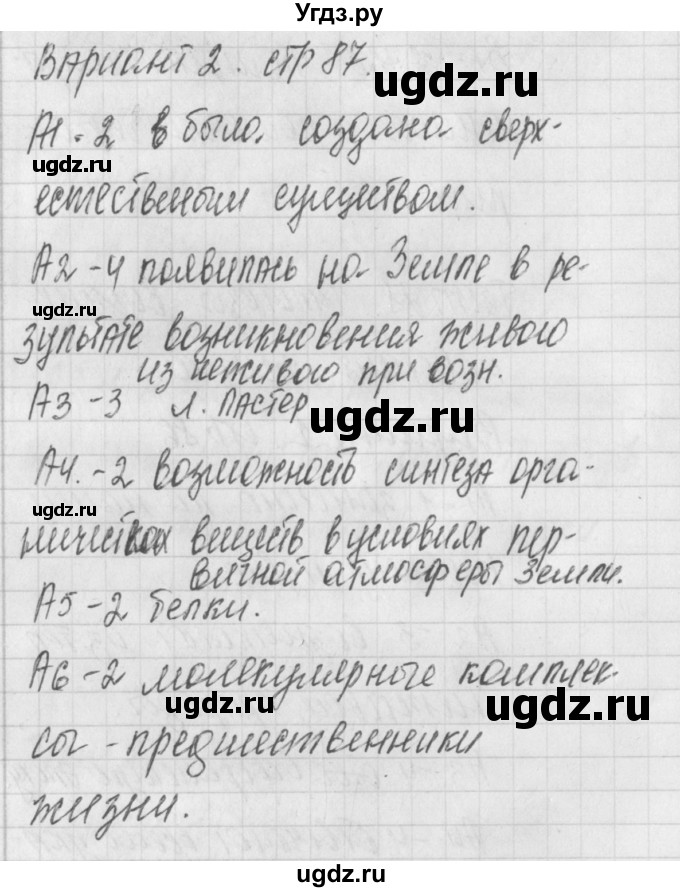 Угдз.ру
Вариант 2. стр 87.
ugdz.ru
А1. 2 в было создано сверх-
ugdz.ru
естественым существом.
А2 -4 появилась на Земле в ре-
ugdz.ru
зультате возникновения живого
из неживого при возн.
А3 -3 Л. ПАСТЕР
ugdz.ru
А4. -2 возможность синтеза орга-
ugdz.ru
нических веществ в условиях пер-
вичной атмосферы Земли.
А5 -2 белки.
ugdz.ru
А6 -2 молекулярные комплек-
ugdz.ru
ugdz.ru
сы -предшественники
жизни.
ugdz.ru